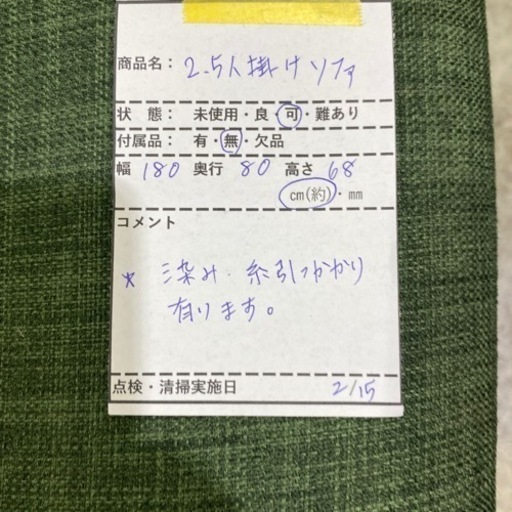 商品名： 2.5人掛けソファ
状　態： 未使用・良・可・難あり
付属品： 有・無・欠品
幅 180 奥行 80 高さ 68
cm(約)・mm
コメント
* 染み・糸引っかかり
有ります。
点検・清掃実施日 2/15